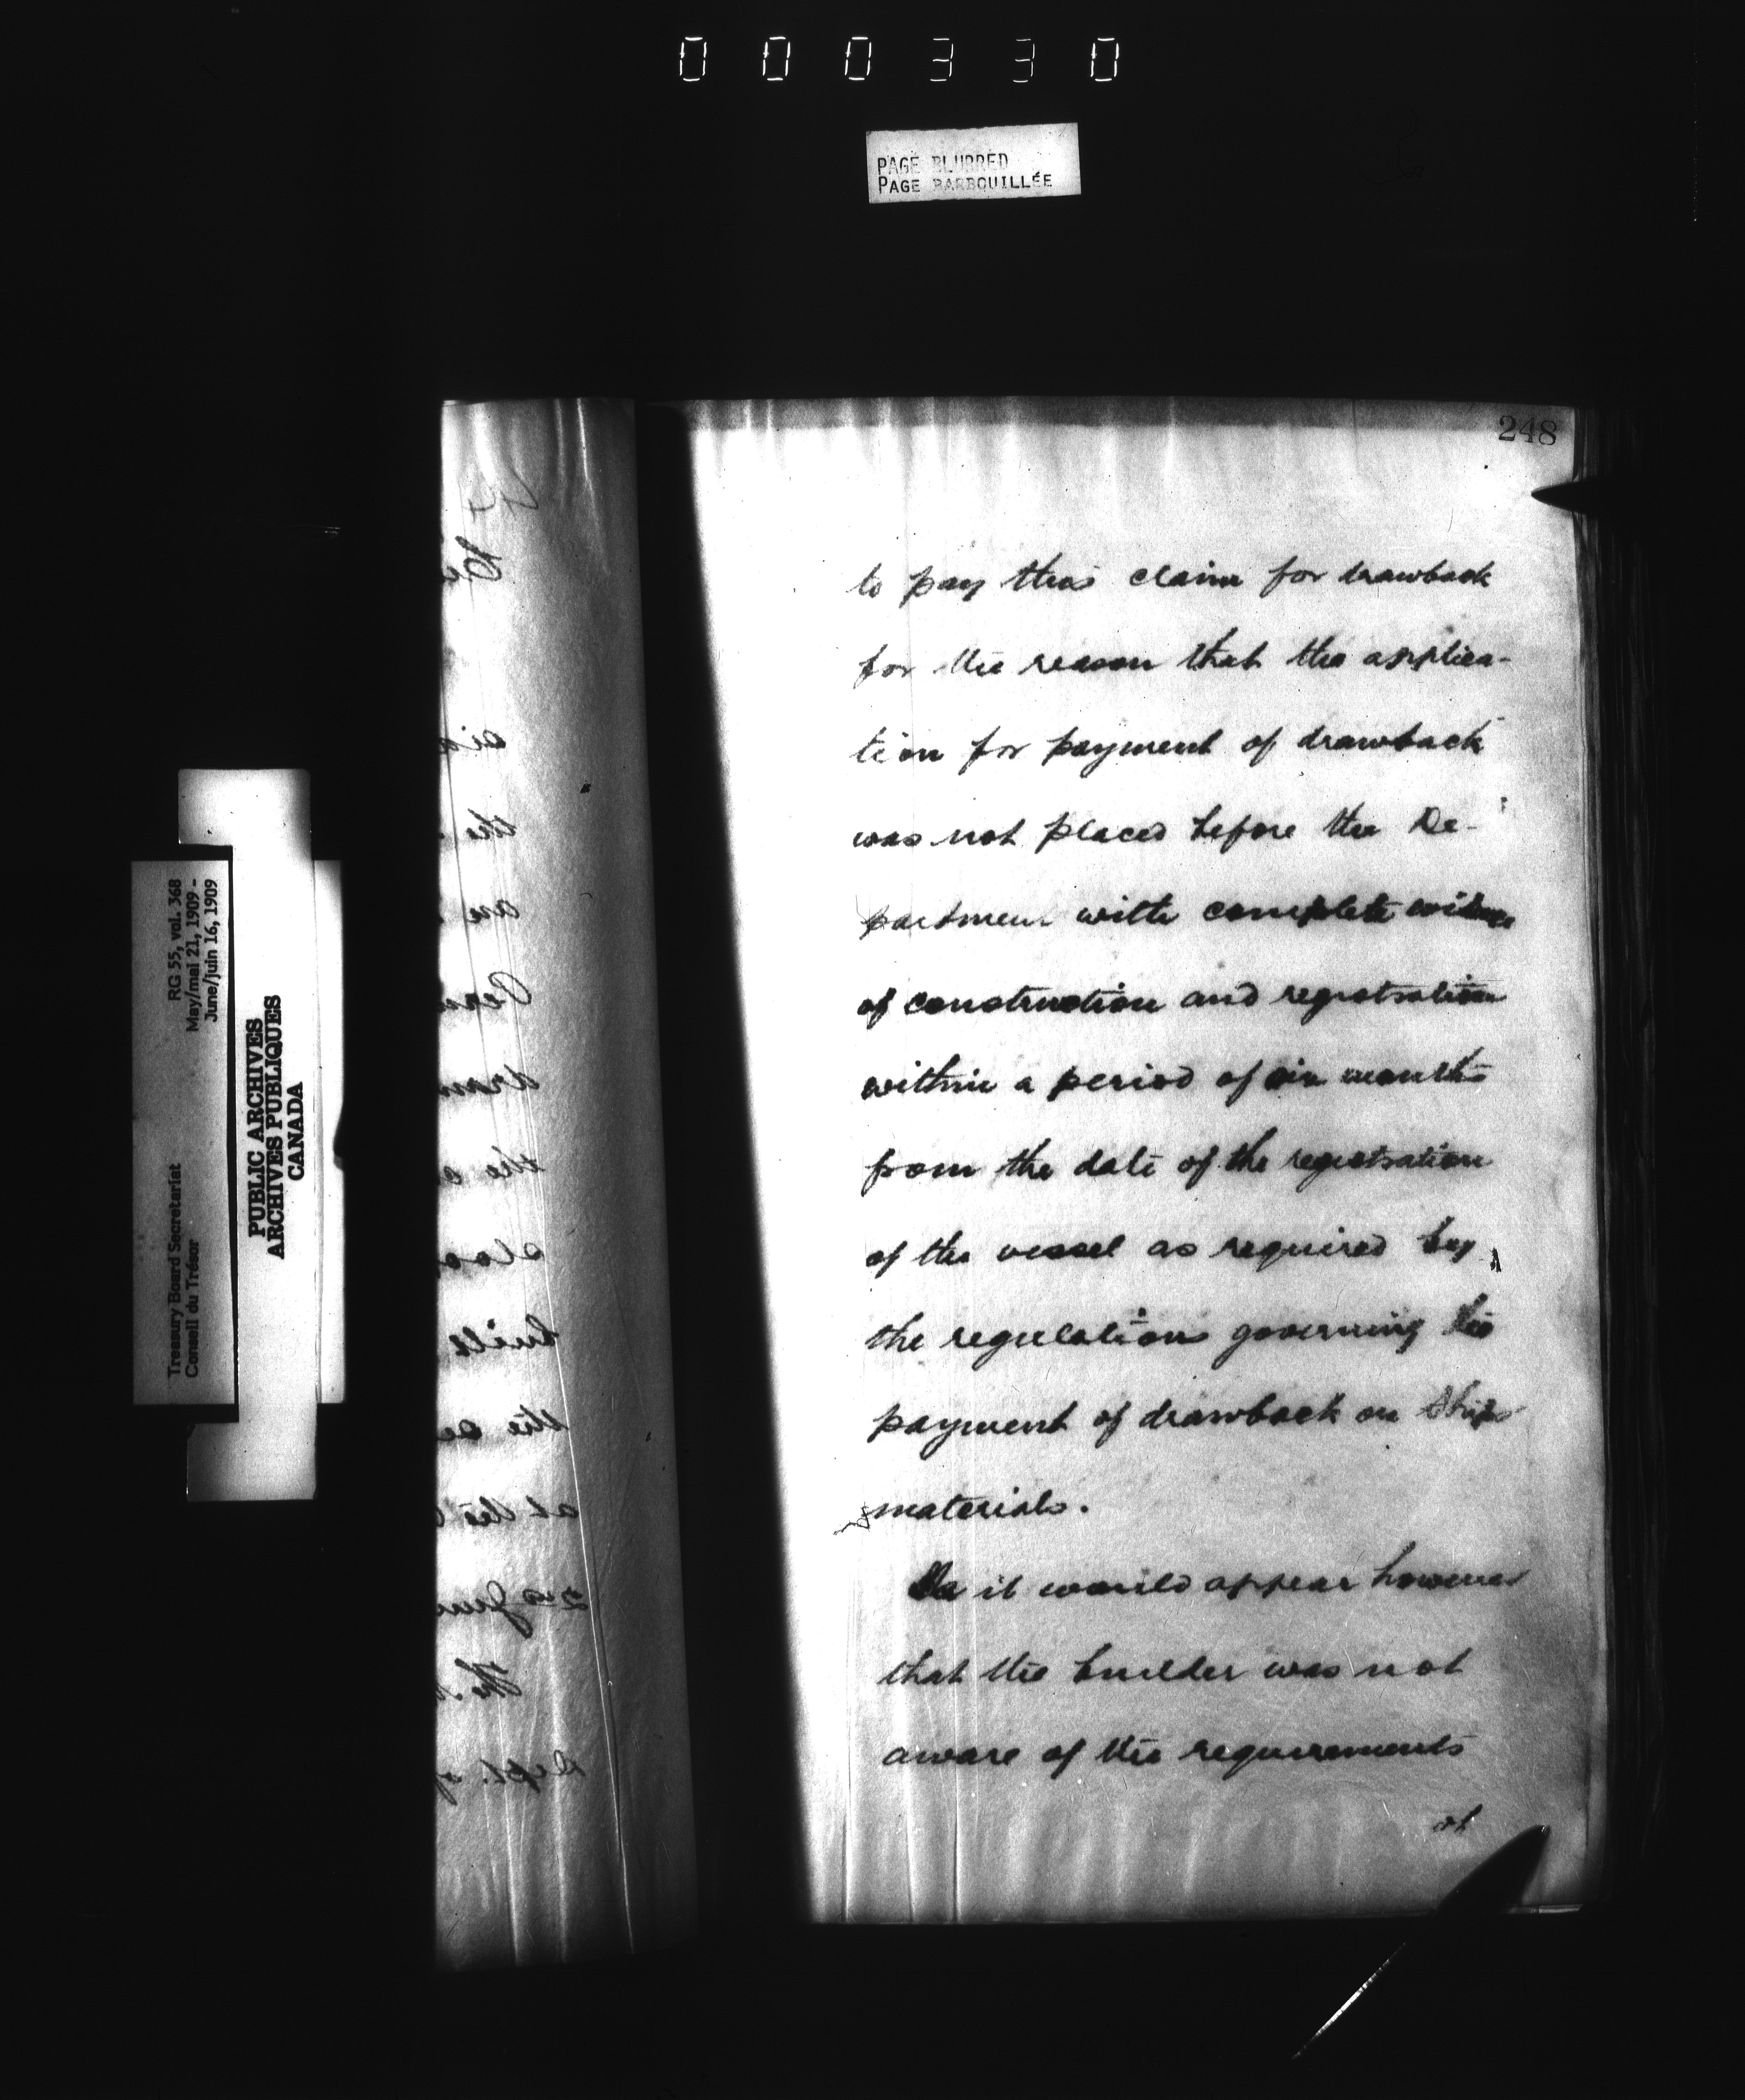 000330
PAGE BLURRED
PAGE BARBOUILLÉE
248
to pay this claim for drawback
for the reason that the applica-
tion for payment of drawback
was not placed before the De-
partment with complete evidence
of construction and registration
within a period of six months
from the date of the registration
of the vessel as required by
the regulations governing the
payment of drawback on Ships
materials.
As it would appear however
that the builder was not
aware of the requirements
of
RG 55, vol. 368
May/mai 21, 1909 -
June/juin 16, 1909
Treasury Board Secretariat
Conseil du Trésor
PUBLIC ARCHIVES
ARCHIVES PUBLIQUES
CANADA